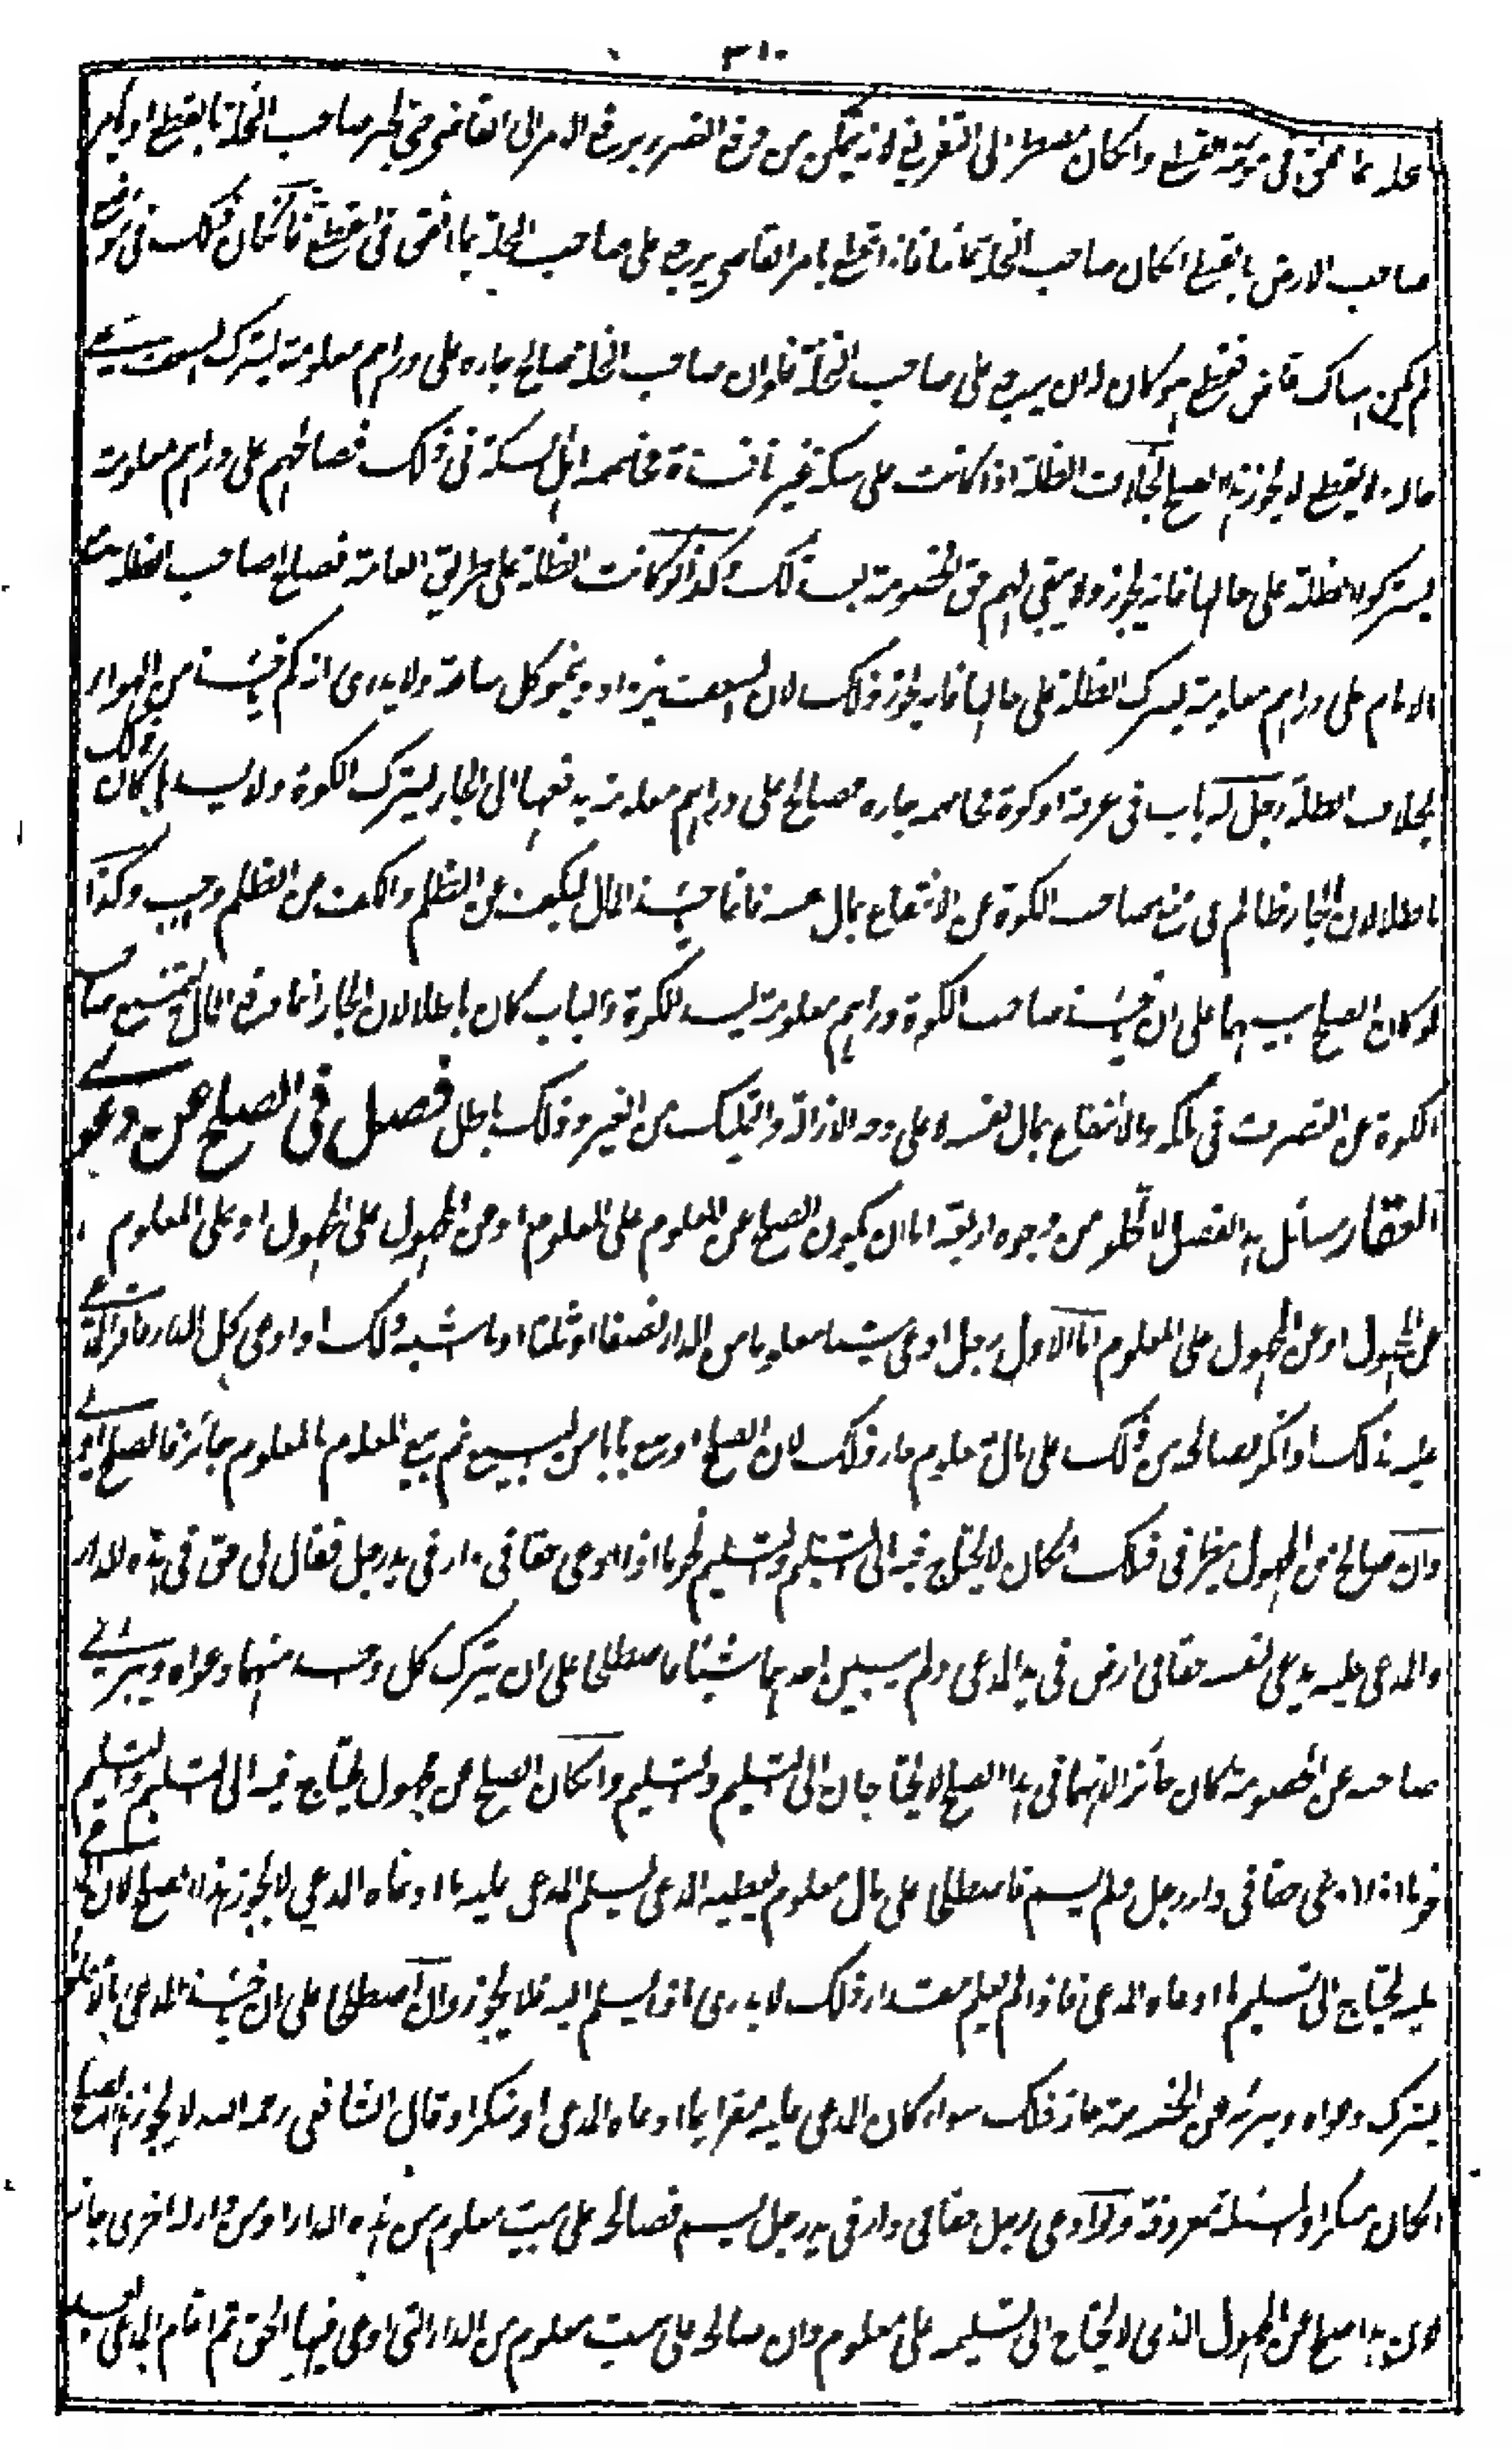 ٣١٠
عليه بما انفق في مؤنة القطع وان كان مضطرا الى التفريغ لانه يتمكن من دفع الضرر برفع الامر الى القاضي حتى يجبر صاحب النخلة بالقطع او يامر
صاحب الارض بالقطع ان كان صاحب النخلة غائبا فاذا قطع بامر القاضي يرجع على صاحب النخلة بما انفق في القطع فان كان ذلك في موضع
لم يكن هناك قاض فقطع هو كان له ان يرجع على صاحب النخلة فلو ان صاحب النخلة صالح جاره على دراهم معلومة ليترك السعف على
حاله ولا يقطع لا يجوز هذا الصلح بخلاف الظلة اذا كانت على سكة غير نافذة فخاصمه اهل السكة في ذلك فصالحهم على دراهم معلومة
ليتركوا الظلة على حالها فانه يجوز ولا يبقى لهم حق الخصومة بعد ذلك وكذا لو كانت الظلة على طريق العامة فصالح صاحب الظلة مع
الامام على دراهم معلومة ليترك الظلة على حالها فانه يجوز ذلك لان السعف يزداد وينمو كل ساعة ولا يدرى انه كم ياخذ من الهواء
بخلاف الظلة رجل له باب في غرفة او كوة فخاصمه جاره فصالح على دراهم معلومة يدفعها الى الجار ليترك الكوة ولا يسد ها كان ذلك
باطلا لان الجار ظالم في منع صاحب الكوة عن الانتفاع بمال نفسه فانما ياخذ المال ليكف عن الظلم والكف عن الظلم واجب وكذا
لو كان الصلح بينهما على ان ياخذ صاحب الكوة دراهم معلومة ليسد الكوة والباب كان باطلا لان الجار انما دفع المال ليمتنع صاحب
الكوة عن التصرف في ملكه والانتفاع بمال نفسه لا على وجه الازالة والتمليك من الغير وذلك باطل فصل في الصلح عن دعوى
العقار مسائل هذا الفصل لا تخلو من وجوه اربعة اما ان يكون الصلح عن المعلوم على المعلوم او عن المجهول على المجهول او على المعلوم
عن المجهول او عن المجهول على المعلوم اما الاول رجل ادعى شيئا معلوما من الدار نصفا او ثلثا او ما اشبه ذلك او ادعى كل الدار فاقر المدعى
عليه بذلك او انكر فصالحه من ذلك على مال معلوم جاز ذلك لان الصلح اوسع بابا من البيع ثم بيع المعلوم بالمعلوم جائز فالصلح اولى
وان صالح عن المجهول ينظر في ذلك ان كان لا يحتاج فيه الى التسليم والتسلم نحو ما اذا ادعى حقا في دار في يد رجل فقال لي حق في هذه الدار
والمدعى عليه يدعي لنفسه حقا في ارض في يد المدعي ولم يبين احدهما شيئا فاصطلحا على ان يترك كل واحد منهما دعواه ويبرئ
صاحبه عن الخصومة كان جائزا لانهما في هذا الصلح لا يحتاجان الى التسليم والتسلم وان كان الصلح عن مجهول يحتاج فيه الى التسليم والتسلم
نحو ما اذا ادعى حقا في دار رجل ولم يسم فاصطلحا على مال معلوم يعطيه المدعي ليسلم المدعى عليه ما ادعاه المدعي لا يجوز هذا الصلح لان المدعى
عليه يحتاج الى تسليم ما ادعاه المدعي فاذا لم يعلم مقدار ذلك لا يدرى ماذا يسلم اليه فلا يجوز وان اصطلحا على ان ياخذ المدعي مالا
ليترك دعواه ويبرئه عن الخصومة جاز ذلك سواء كان المدعى عليه مقرا بما ادعاه المدعي او منكرا وقال الشافعي رحمه الله لا يجوز هذا الصلح
ان كان منكرا والمسئلة معروفة ولو ادعى رجل حقا في دار في يد رجل لم يسم فصالحه على بيت معلوم من هذه الدار او من دار اخرى جاز
لان هذا صلح عن المجهول الذي لا يحتاج الى تسليمه على معلوم وان صالحه على بيت معلوم من الدار التي ادعى فيها الحق ثم اقام المدعي